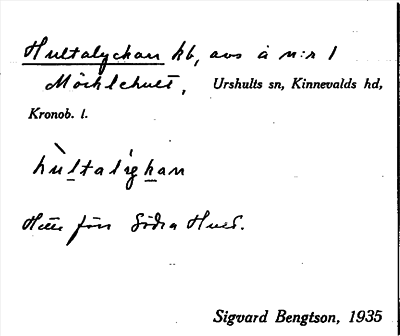 Hultalyckan kb, avs å n:r 1
Möcklehult, Urshults sn, Kinnevalds hd,
Kronob. l.
hùltalyckan
Hette förr Södra Hult.
Sigvard Bengtson, 1935